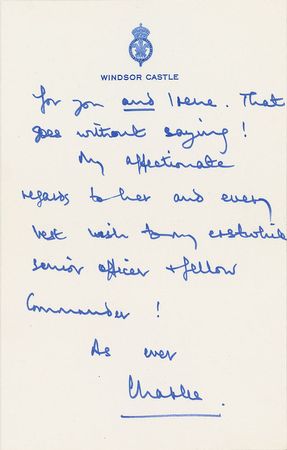 WINDSOR CASTLE
for you and Irene. That
goes without saying!
My affectionate
regards to her and every
best wish to my erstwhile
senior officer + fellow
Commander!
As ever
Charles.